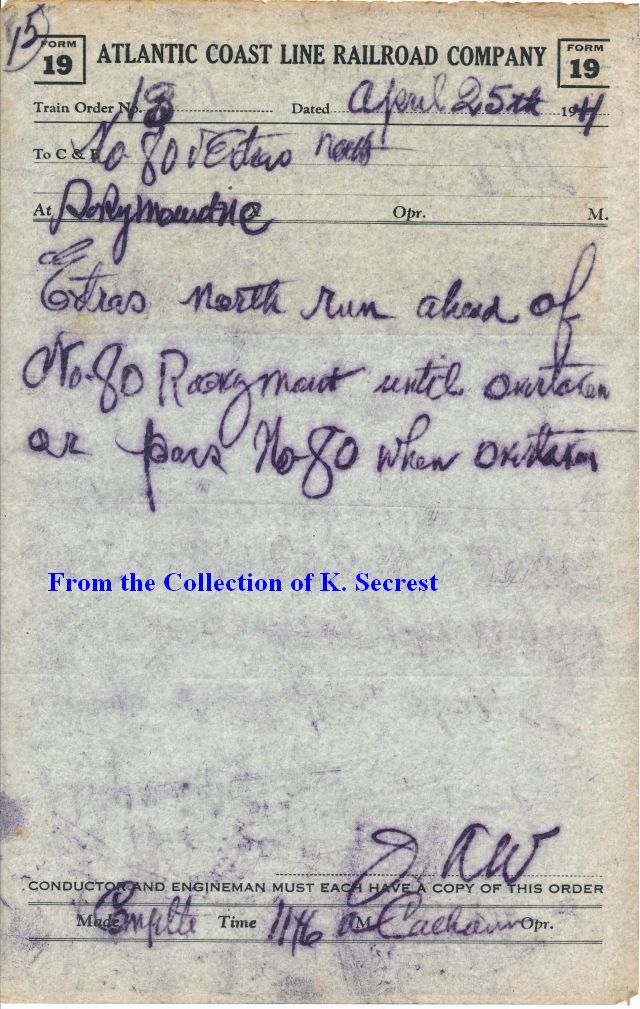 15
FORM 19 ATLANTIC COAST LINE RAILROAD COMPANY FORM 19
Train Order No. 18 Dated April 25th 1941
To C & E No 80 & Extras North
At Rocky Mount NC X Opr. M.
Extras north run ahead of
No-80 Rocky mount until overtaken
or pass No-80 when overtaken
From the Collection of K. Secrest
J AW
CONDUCTOR AND ENGINEMAN MUST EACH HAVE A COPY OF THIS ORDER
Made Complete Time 1146 A M Calhoun Opr.